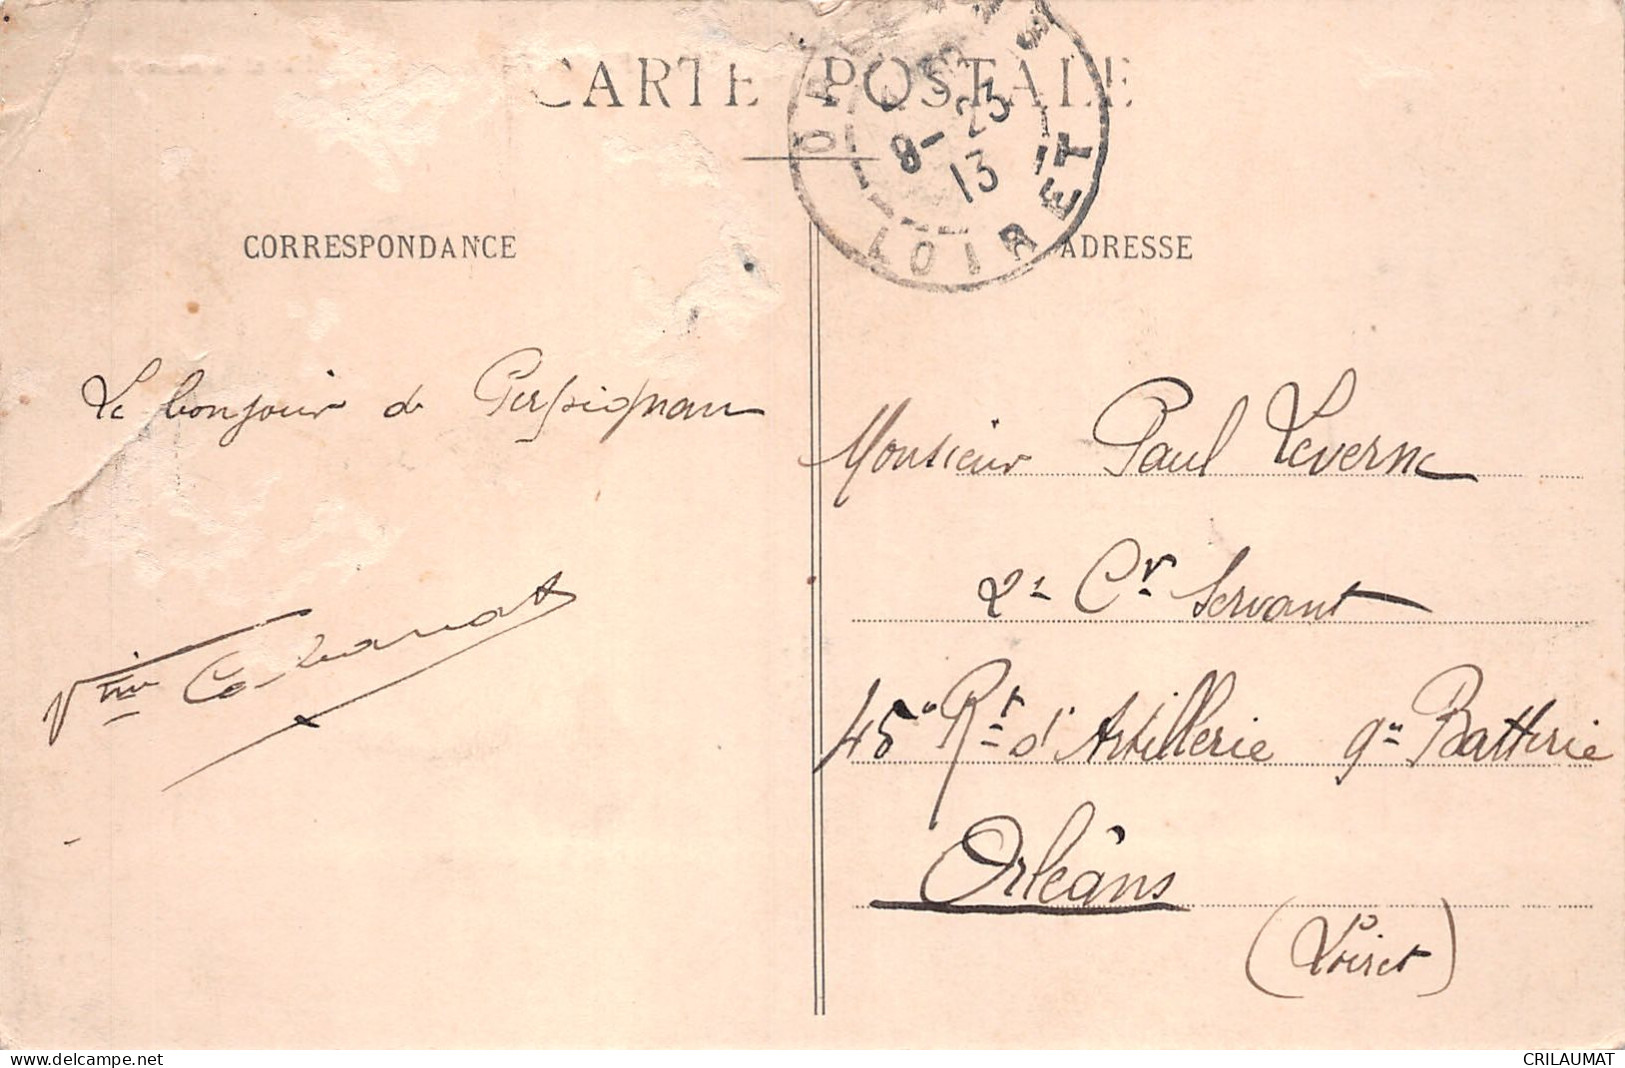 CARTE POSTALE
8-23
13
LOIRET
CORRESPONDANCE
ADRESSE
Le bonjour de Perpignan
Monsieur Paul Leverne
2e Cr Servant
45e Rt d'Artillerie 9e Batterie
Orléans
(Loiret)
www.delcampe.net
CRILAUMAT